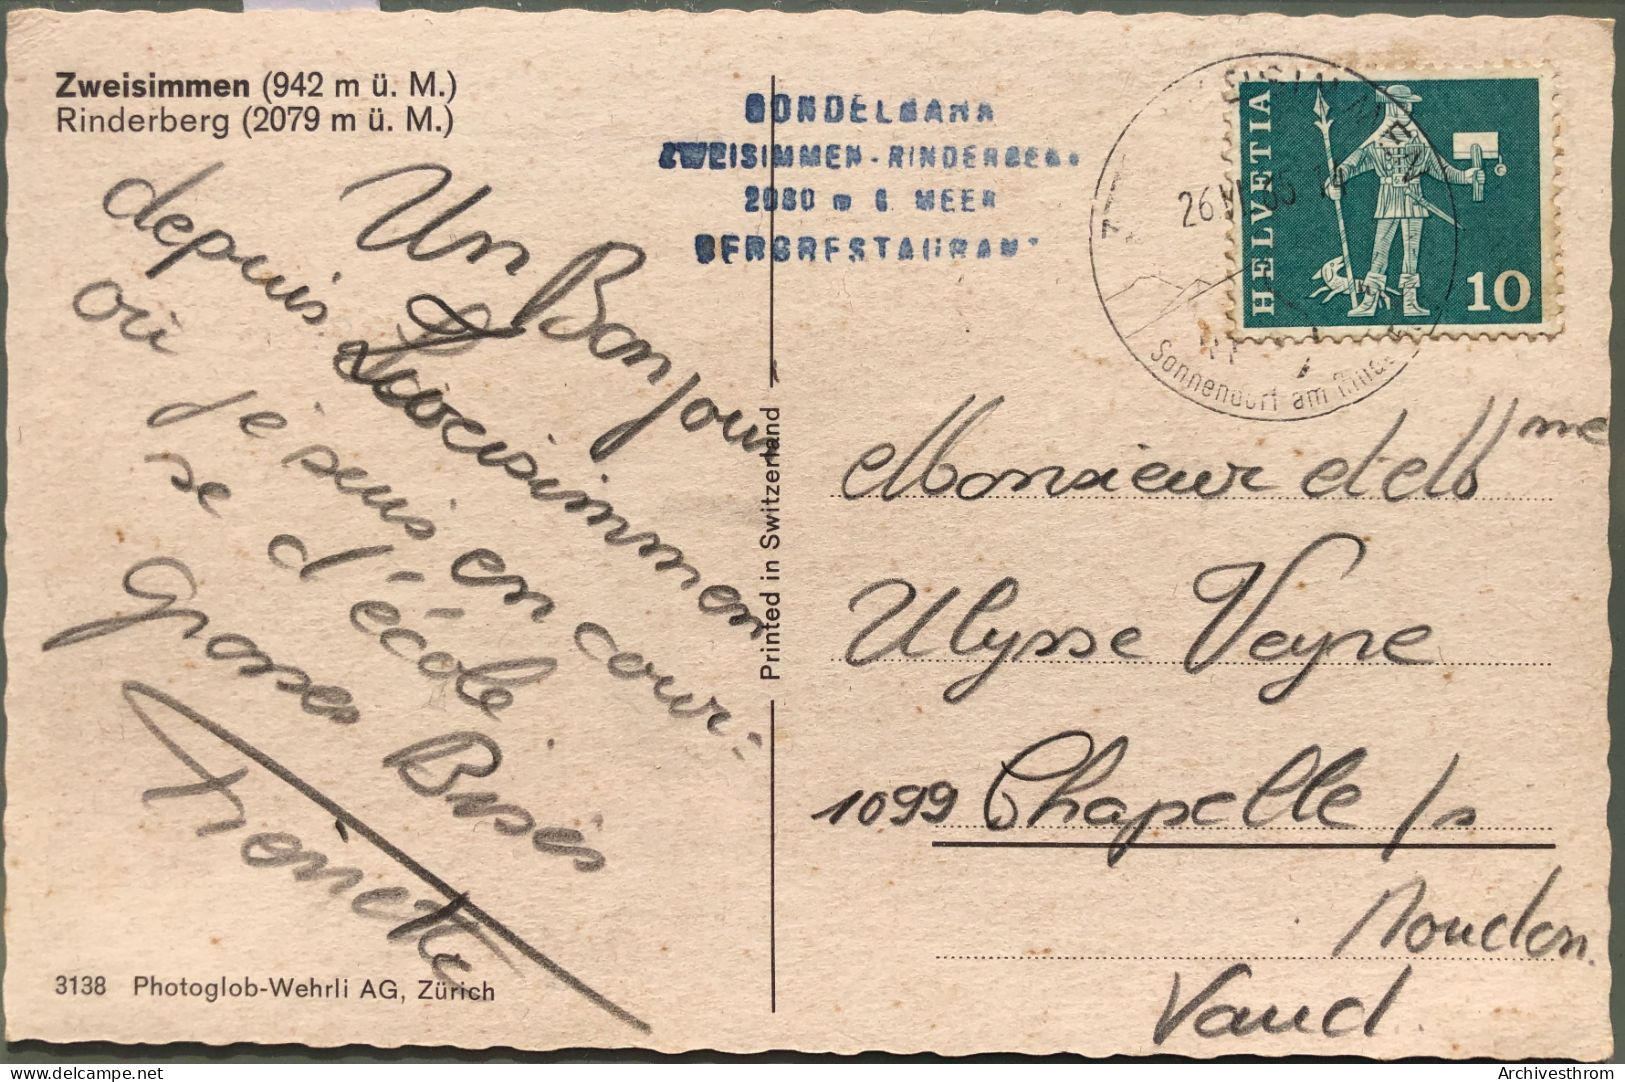 Zweisimmen (942 m ü. M.)
Rinderberg (2079 m ü. M.)
Un Bonjour
depuis Zweisimmen
où je suis en cour-
se d'école
Grosses Bises
GONDELBAHN
ZWEISIMMEN-RINDERBERG
2080 m ü. MEER
BERGRESTAURANT
26.VI.65 14
Sonnendorf am Rinderberg
HELVETIA
10
Printed in Switzerland
Monsieur et Mme
Ulysse Veyre
1099 Chapelle /s
Moudon.
Vaud.
3138 Photoglob-Wehrli AG, Zürich
www.delcampe.net
Archivesthrom